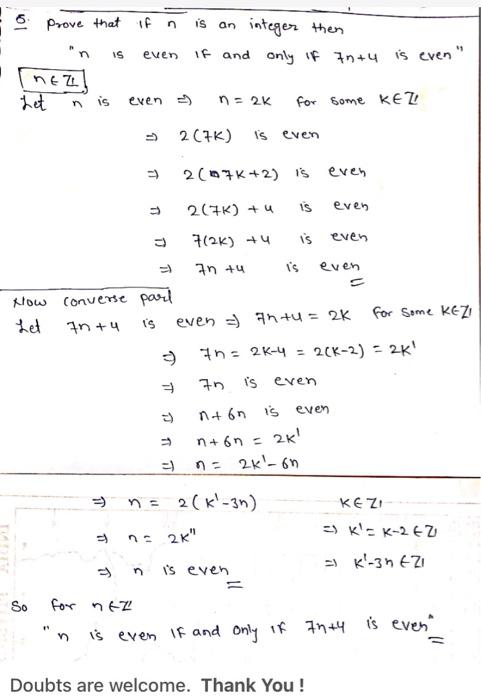 5. Prove that if n is an integer then
"n is even if and only if 7n+4 is even"
n ∈ ℤ
Let n is even ⇒ n = 2k for some k∈ℤ
⇒ 2(7k) is even
⇒ 2(7k+2) is even
⇒ 2(7k) + 4 is even
⇒ 7(2k) + 4 is even
⇒ 7n + 4 is even
Now converse part
Let 7n+4 is even ⇒ 7n+4 = 2k for some k∈ℤ
⇒ 7n = 2k-4 = 2(k-2) = 2k'
⇒ 7n is even
⇒ n+6n is even
⇒ n+6n = 2k'
⇒ n = 2k'-6n
⇒ n = 2(k'-3n) k∈ℤ
⇒ n = 2k" ⇒ k' = k-2 ∈ ℤ
⇒ n is even ⇒ k'-3n ∈ ℤ
So for n∈ℤ
"n is even if and only if 7n+4 is even"
Doubts are welcome. Thank You !